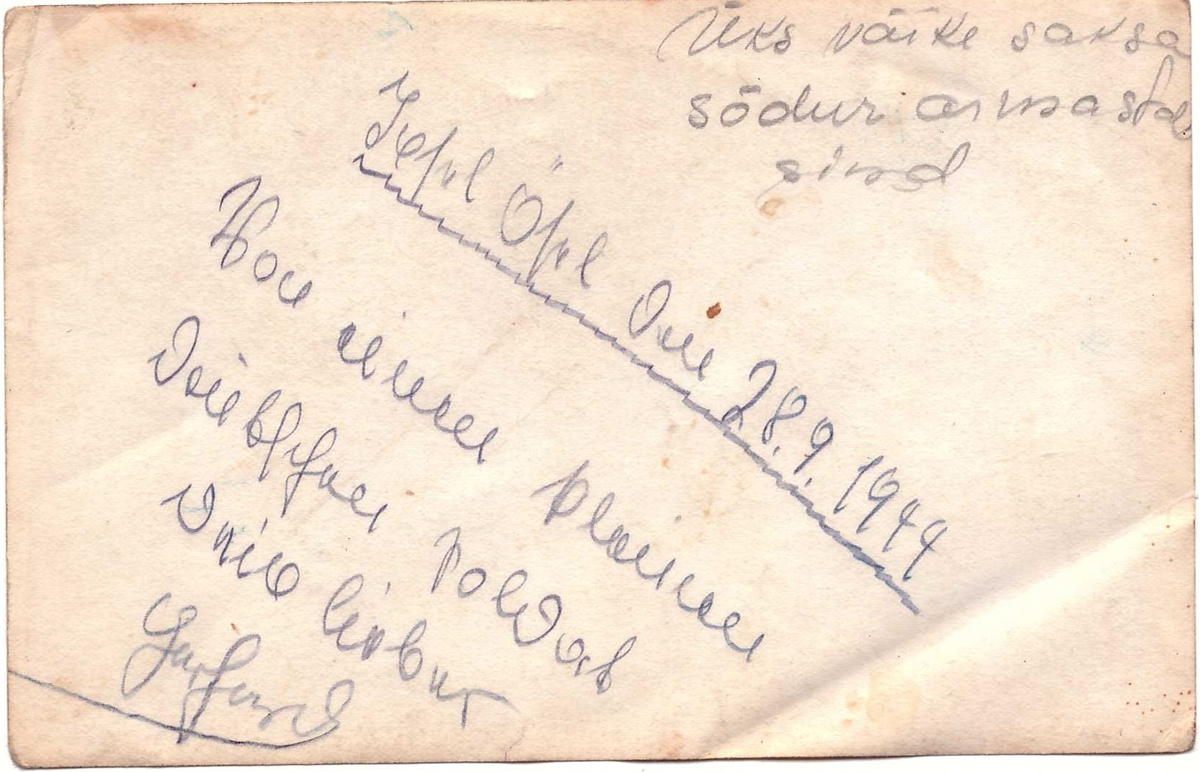 Üks väike saksa
sõdur armastab
sind
Insel Ösel Den 28.9.1944
Von einen kleinen
Deutschen Soldat
Dein lieber
Gerhard